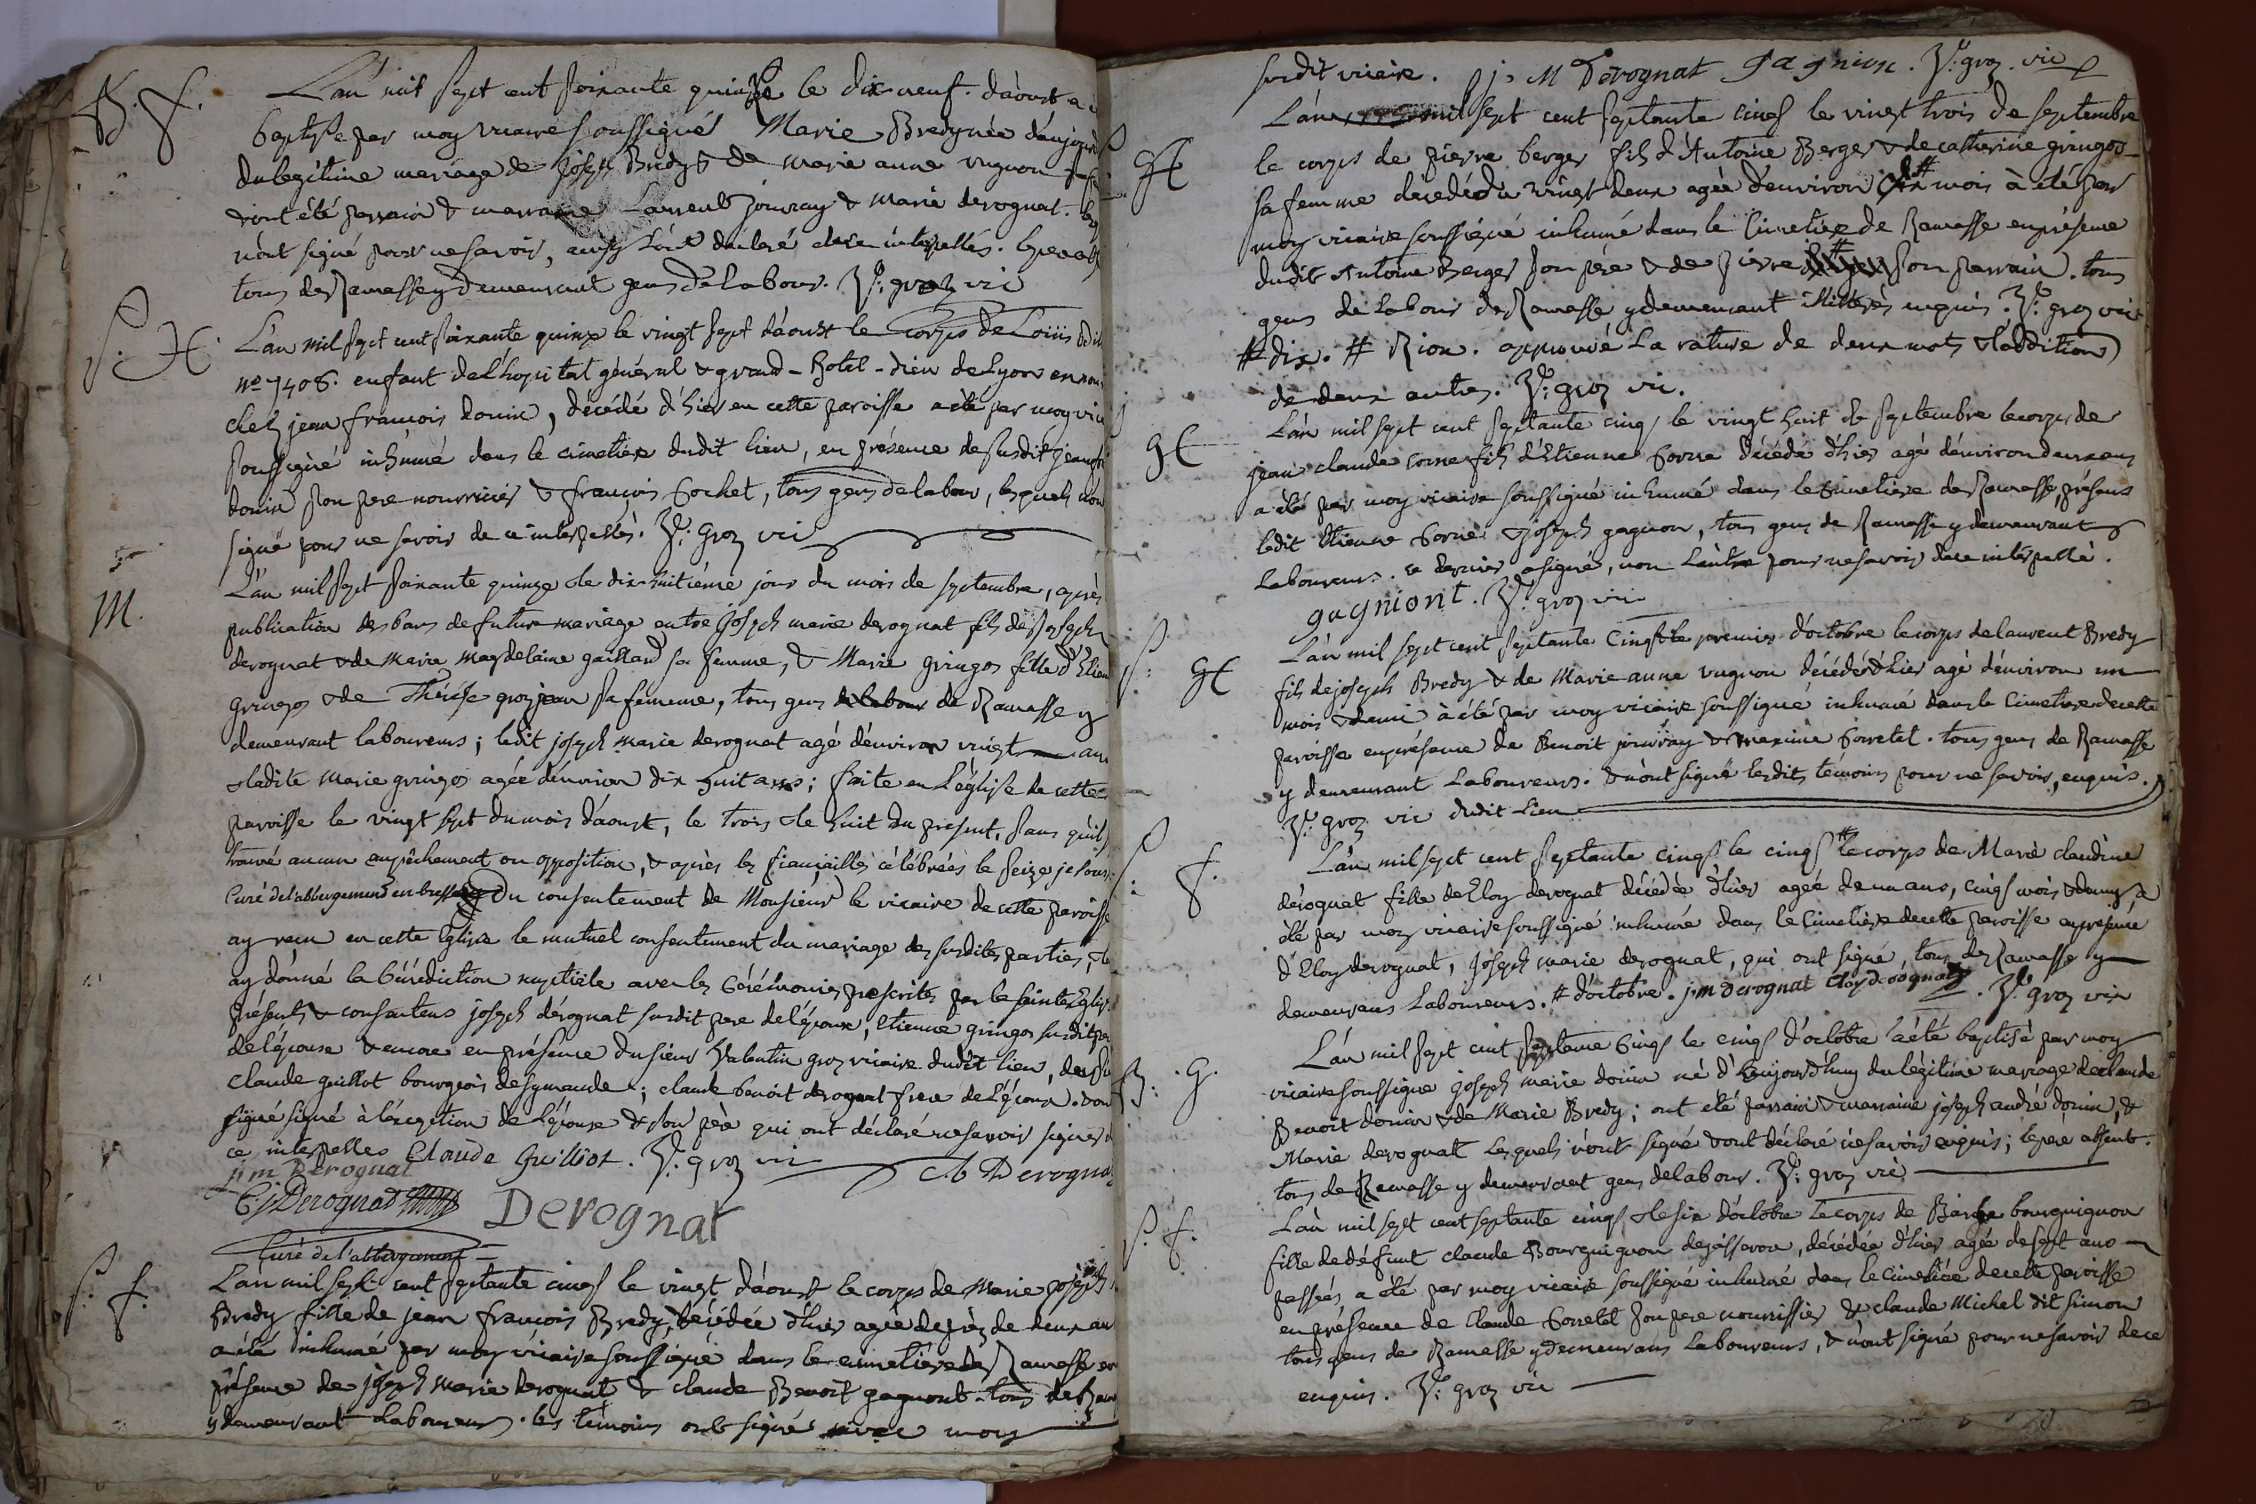 B. f.
L'an mil sept cent soixante quinze le dix neuf. d'aoust a
baptisée par moy vicaire soussigné Marie Bredy née d'aujourd
du legitime mariage de joseph Bredy & de marie anne vugnon
ont été parrain & marraine Laurent jouvray & marie derognat.
n'ont signé pour ne savoir, ainsy l'ont déclaré de ce interpellés. le pere abst
tous de Ramasse y demeurant gens de labour. V: groz vic
S. H.
L'an mil sept cent soixante quinze le vingt sept d'aoust le corps de Loüis
n° 7406. enfant de l'hopital général & grand-hotel-dieu de Lyon en nour
chez jean françois donin, décédé d'hier en cette paroisse a été par moy vic
soussigné inhumé dans le cimetière dudit lieu, en présence de susdit jean fr
donin son pere nourricier & françois Cochet, tous gens de labour, lesquels n'on
signé pour ne savoir de ce interpellés. V: groz vic
M.
L'an mil sept soixante quinze & le dix huitième jour du mois de septembre, après
publication des bans de future mariage entre joseph marie derognat fils de joseph
derognat & de marie magdelaine gaillard sa femme, & Marie gringoz fille d'Etien
gringoz & de Thérèse grosjean sa femme, tous gens de labour de Ramasse y
demeurant laboureurs; ledit joseph marie derognat agé d'environ vingt ans
& ladite marie gringoz agée d'environ dix huit ans; faite en l'église de cette
paroisse le vingt sept du mois d'aoust, le trois & le huit du présent, sans qu'il
trouvé aucun empêchement ou opposition, & après les fiançailles célébrées le seize je sous
Curé de l'abbergement en bresse du consentement de Monsieur le vicaire de cette paroisse
ay reçu en cette Eglise le mutuel consentement du mariage des susdites parties,
ay donné la bénédiction nuptiale avec les Cérémonies prescrites par la sainte Eglise
présents & consentens joseph dérognat susdit pere de l'époux, Etienne gringoz susdit per
de l'épouse & encore en présence du sieur Valentin groz vicaire dudit lieu, du Sr
claude guillot bourgeois de symande; claude benoit derognat frere de l'époux. dont
signé à l'exception de l'épouse & son père qui ont déclaré ne savoir signer
ce interpelles Claude Guilliot. V: groz vic Cb Derognat
j:m: Derognat
Derognat Derognat
Curé de l'abbergement
S. f.
L'an mil sept cent septante cinq le vingt d'aoust le corps de Marie joseph
Bredy fille de jean françois Bredy, décédée d'hier agée de près de deux an
a été inhumé par moy vicaire soussigné dans le cimetière de Ramasse en
présence de joseph marie derognat & claude Benoit gagnont tous de Ram
y demeurant laboureurs. les témoins ont signé avec moy
susdit vicaire. j. M Derognat gagnion. V: groz vic
S. H
L'an mil sept cent septante cinq le vingt trois de septembre
le corps de pierre berger fils d'Antoine Berger & de catherine gringoz
sa femme décédé du vingt deux agée d'environ # mois à été par
moy vicaire soussigné inhumé dans le Cimetière de Ramasse en présence
dudit Antoine Berger son père & de pierre # son parrain. tous
gens de labour de Ramasse y demeurant illitérés enquis. V: groz vic
# dix. # Rion. approuvé la rature de deux mots & l'addition
de deux autres. V: groz vic.
S. H
L'an mil sept cent septante cinq le vingt huit de septembre le corps de
jean claude Corne fils d'Etienne Corne décédé d'hier agé d'environ deux ans
a été par moy vicaire soussigné inhumé dans le cimetière de Ramasse, présens
ledit Etienne Corne & joseph gagnon, tous gens de Ramasse y demeurant
laboureurs. ce dernier a signé, non l'autre pour ne savoir de ce interpellé.
gagniont. V: groz vic
S. H
L'an mil sept cent septante Cinq & le premier d'octobre le corps de laurent Bredy
fils de joseph Bredy & de Marie anne vugnon décédé d'hier agé d'environ un
mois & demi à été par moy vicaire soussigné inhumé dans le Cimetière de cette
paroisse en présence de Benoit jouvray & maxime Corretel. tous gens de Ramasse
y demeurant Laboureurs. & n'ont signé lesdits témoins pour ne savoir, enquis.
V: groz vic dudit lieu
S. f.
L'an mil sept cent septante Cinq le cinq # le corps de Marie claudine
dérognat fille de Eloy derognat décédée d'hier agée de un ans, cinq mois & demy, a
été par moy vicaire soussigné inhumé dans le Cimetière de cette paroisse en présence
d'Eloy derognat, joseph marie derognat, qui ont signé, tous de Ramasse y
demeurans laboureurs. # d'octobre. j:m Derognat Eloy derognat. V: groz vic
B: G.
L'an mil sept cent septante Cinq le cinq d'octobre à été baptisé par moy
vicaire soussigné joseph marie donin né d'aujourd'huy du légitime mariage de claude
Benoit donin & de Marie Bredy; ont été parrain & marraine joseph andré donin, &
Marie derognat lesquels n'ont signé & ont déclaré ne savoir enquis; le père absent.
tous de Ramasse y demeurant gens de labour. V: groz vic
S. f.
L'an mil sept cent septante cinq & le six d'octobre le corps de Barbe bourguignon
fille de défunt claude Bourguignon de jasseron, décédée d'hier agée de sept ans
passées a été par moy vicaire soussigné inhumé dans le Cimetière de cette paroisse
en présence de Claude Corretel son pere nourrissier & claude Michel dit simon
tous gens de Ramasse y demeurans laboureurs, & n'ont signé pour ne savoir de ce
enquis. V: groz vic